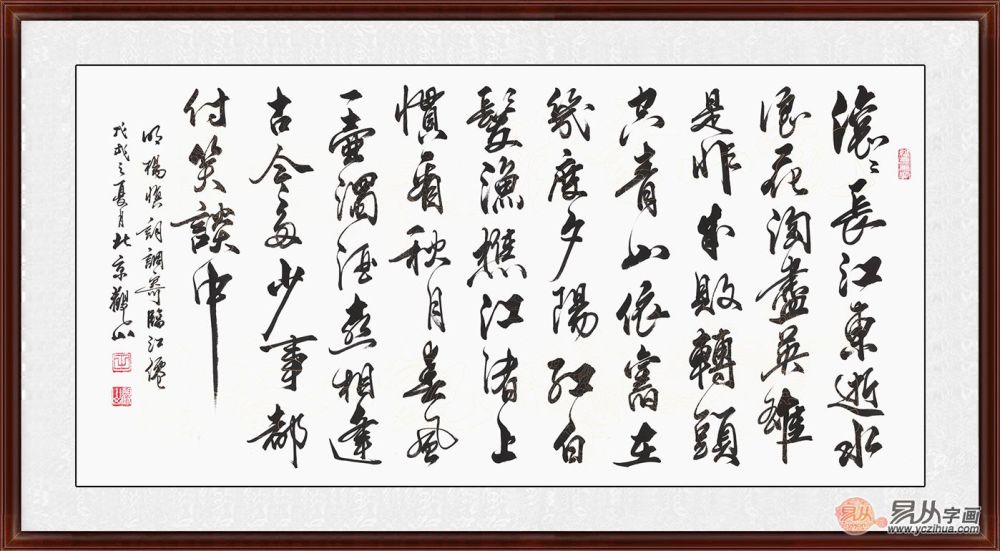 滾〻長江東逝水
浪花淘盡英雄
是非成敗轉頭
空青山依舊在
幾度夕陽紅白
髮漁樵江渚上
慣看秋月春風
一壺濁酒喜相逢
古今多少事都
付笑談中
明楊慎詞調寄臨江僊
戊戌之夏月北京觀山
易从
易从字画
www.yczihua.com